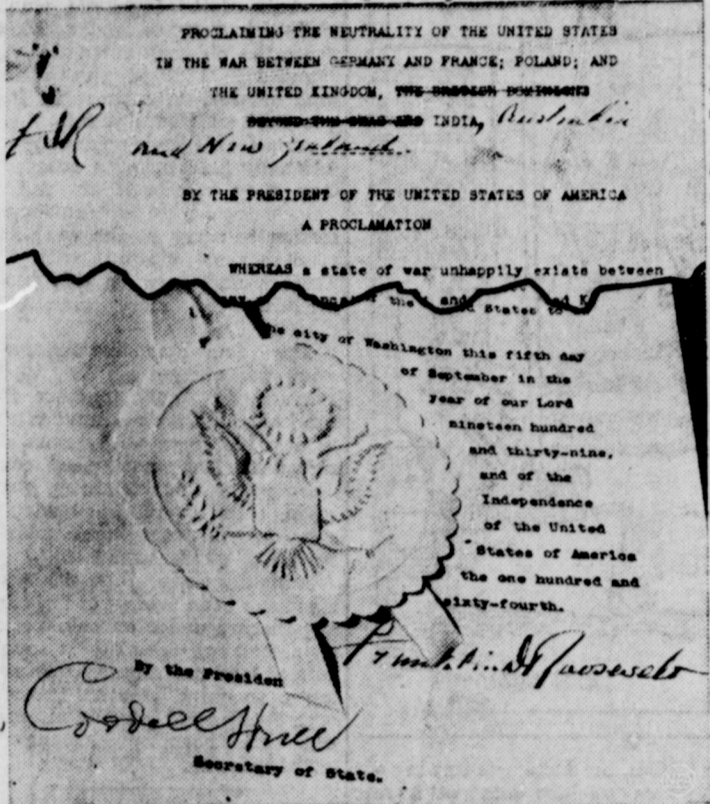 PROCLAIMING THE NEUTRALITY OF THE UNITED STATES
IN THE WAR BETWEEN GERMANY AND FRANCE; POLAND; AND
THE UNITED KINGDOM, THE BRITISH DOMINIONS
BEYOND THE SEAS AND INDIA, Australia
FDR and New Zealand.
BY THE PRESIDENT OF THE UNITED STATES OF AMERICA
A PROCLAMATION
WHEREAS a state of war unhappily exists between
the and States to
the city of Washington this fifth day
of September in the
year of our Lord
nineteen hundred
and thirty-nine,
and of the
Independence
of the United
States of America
the one hundred and
sixty-fourth.
Franklin D Roosevelt
By the Presiden
Cordell Hull
Secretary of State.